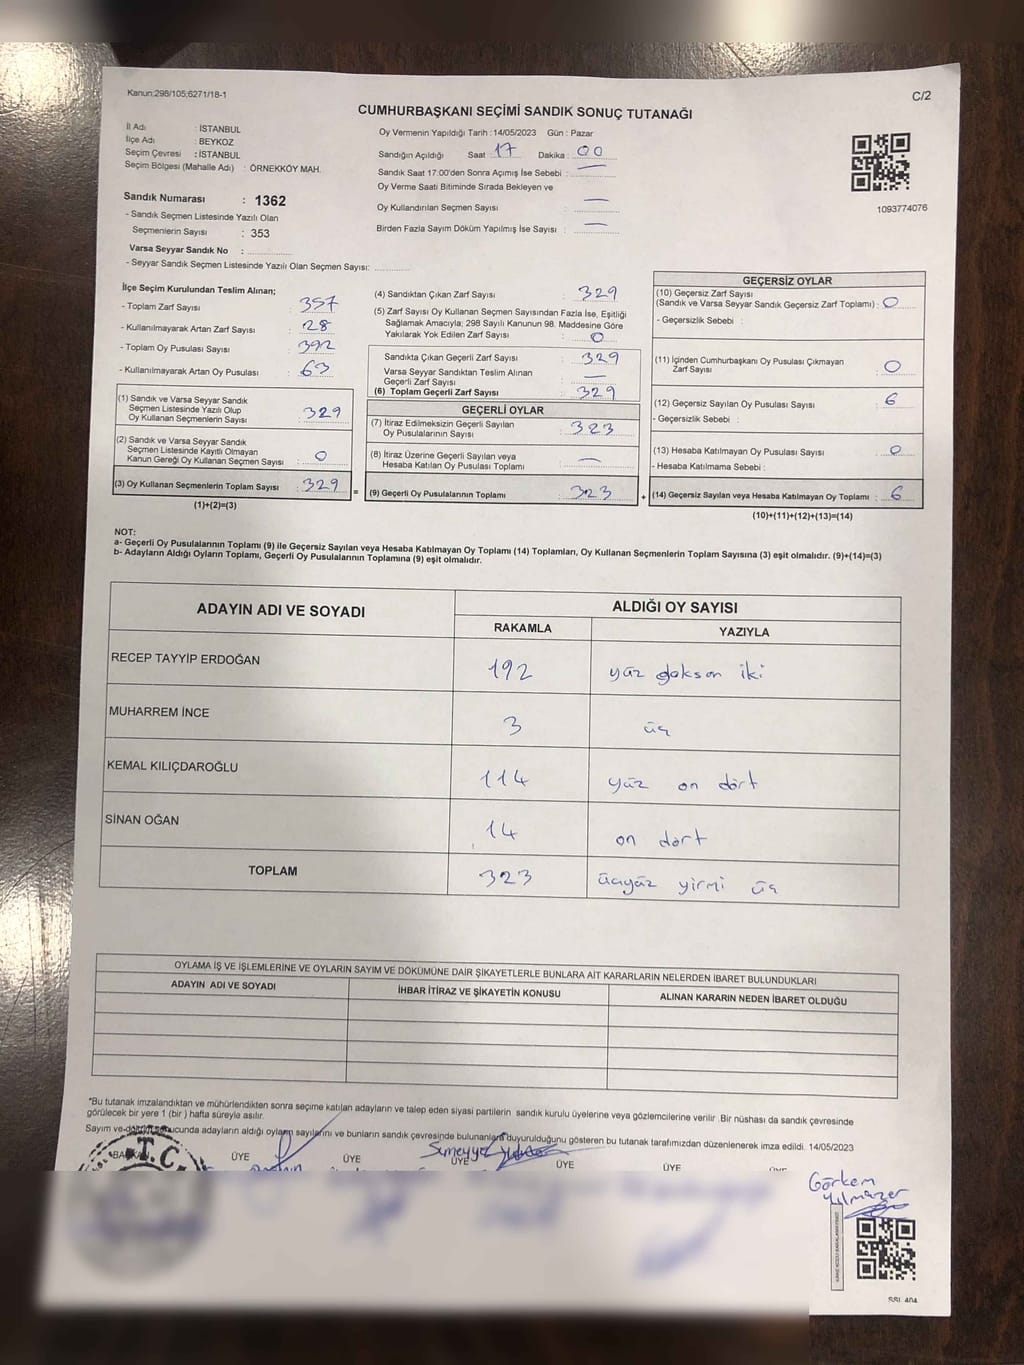 Kanun:298/105;6271/18-1
C/2
CUMHURBAŞKANI SEÇİMİ SANDIK SONUÇ TUTANAĞI
İl Adı : İSTANBUL
İlçe Adı : BEYKOZ
Seçim Çevresi : İSTANBUL
Seçim Bölgesi (Mahalle Adı) : ÖRNEKKÖY MAH.
Sandık Numarası : 1362
- Sandık Seçmen Listesinde Yazılı Olan
Seçmenlerin Sayısı : 353
Varsa Seyyar Sandık No :
- Seyyar Sandık Seçmen Listesinde Yazılı Olan Seçmen Sayısı:
Oy Vermenin Yapıldığı Tarih : 14/05/2023 Gün : Pazar
Sandığın Açıldığı Saat : 17 Dakika : 00
Sandık Saat 17:00'den Sonra Açımış İse Sebebi : —
Oy Verme Saati Bitiminde Sırada Bekleyen ve
Oy Kullandırılan Seçmen Sayısı : —
Birden Fazla Sayım Döküm Yapılmış İse Sayısı : —
1093774076
İlçe Seçim Kurulundan Teslim Alınan;
- Toplam Zarf Sayısı : 357
- Kullanılmayarak Artan Zarf Sayısı : 28
- Toplam Oy Pusulası Sayısı : 392
- Kullanılmayarak Artan Oy Pusulası : 63
(1) Sandık ve Varsa Seyyar Sandık
Seçmen Listesinde Yazılı Olup
Oy Kullanan Seçmenlerin Sayısı : 329
(2) Sandık ve Varsa Seyyar Sandık
Seçmen Listesinde Kayıtlı Olmayan
Kanun Gereği Oy Kullanan Seçmen Sayısı : 0
(3) Oy Kullanan Seçmenlerin Toplam Sayısı : 329
(1)+(2)=(3)
(4) Sandıktan Çıkan Zarf Sayısı : 329
(5) Zarf Sayısı Oy Kullanan Seçmen Sayısından Fazla İse, Eşitliği
Sağlamak Amacıyla; 298 Sayılı Kanunun 98. Maddesine Göre
Yakılarak Yok Edilen Zarf Sayısı : 0
Sandıkta Çıkan Geçerli Zarf Sayısı : 329
Varsa Seyyar Sandıktan Teslim Alınan
Geçerli Zarf Sayısı : —
(6) Toplam Geçerli Zarf Sayısı : 329
GEÇERLİ OYLAR
(7) İtiraz Edilmeksizin Geçerli Sayılan
Oy Pusulalarının Sayısı : 323
(8) İtiraz Üzerine Geçerli Sayılan veya
Hesaba Katılan Oy Pusulası Toplamı : —
= (9) Geçerli Oy Pusulalarının Toplamı : 323
GEÇERSİZ OYLAR
(10) Geçersiz Zarf Sayısı
(Sandık ve Varsa Seyyar Sandık Geçersiz Zarf Toplamı) : 0
- Geçersizlik Sebebi :
(11) İçinden Cumhurbaşkanı Oy Pusulası Çıkmayan
Zarf Sayısı : 0
(12) Geçersiz Sayılan Oy Pusulası Sayısı : 6
- Geçersizlik Sebebi :
(13) Hesaba Katılmayan Oy Pusulası Sayısı : 0
- Hesaba Katılmama Sebebi :
+ (14) Geçersiz Sayılan veya Hesaba Katılmayan Oy Toplamı : 6
(10)+(11)+(12)+(13)=(14)
NOT:
a- Geçerli Oy Pusulalarının Toplamı (9) ile Geçersiz Sayılan veya Hesaba Katılmayan Oy Toplamı (14) Toplamları, Oy Kullanan Seçmenlerin Toplam Sayısına (3) eşit olmalıdır. (9)+(14)=(3)
b- Adayların Aldığı Oyların Toplamı, Geçerli Oy Pusulalarının Toplamına (9) eşit olmalıdır.
ADAYIN ADI VE SOYADI
ALDIĞI OY SAYISI
RAKAMLA YAZIYLA
RECEP TAYYİP ERDOĞAN 192 yüz doksan iki
MUHARREM İNCE 3 üç
KEMAL KILIÇDAROĞLU 114 yüz on dört
SİNAN OĞAN 14 on dört
TOPLAM 323 üçyüz yirmi üç
OYLAMA İŞ VE İŞLEMLERİNE VE OYLARIN SAYIM VE DÖKÜMÜNE DAİR ŞİKAYETLERLE BUNLARA AİT KARARLARIN NELERDEN İBARET BULUNDUKLARI
ADAYIN ADI VE SOYADI İHBAR İTİRAZ VE ŞİKAYETİN KONUSU ALINAN KARARIN NEDEN İBARET OLDUĞU
*Bu tutanak imzalandıktan ve mühürlendikten sonra seçime katılan adayların ve talep eden siyasi partilerin sandık kurulu üyelerine veya gözlemcilerine verilir .Bir nüshası da sandık çevresinde
görülecek bir yere 1 (bir ) hafta süreyle asılır.
Sayım ve döküm sonucunda adayların aldığı oyların sayılarını ve bunların sandık çevresinde bulunanlara duyurulduğunu gösteren bu tutanak tarafımızdan düzenlenerek imza edildi. 14/05/2023
BAŞKAN ÜYE ÜYE ÜYE ÜYE ÜYE
T.C.
Sümeyye
Görkem
Yılmazer